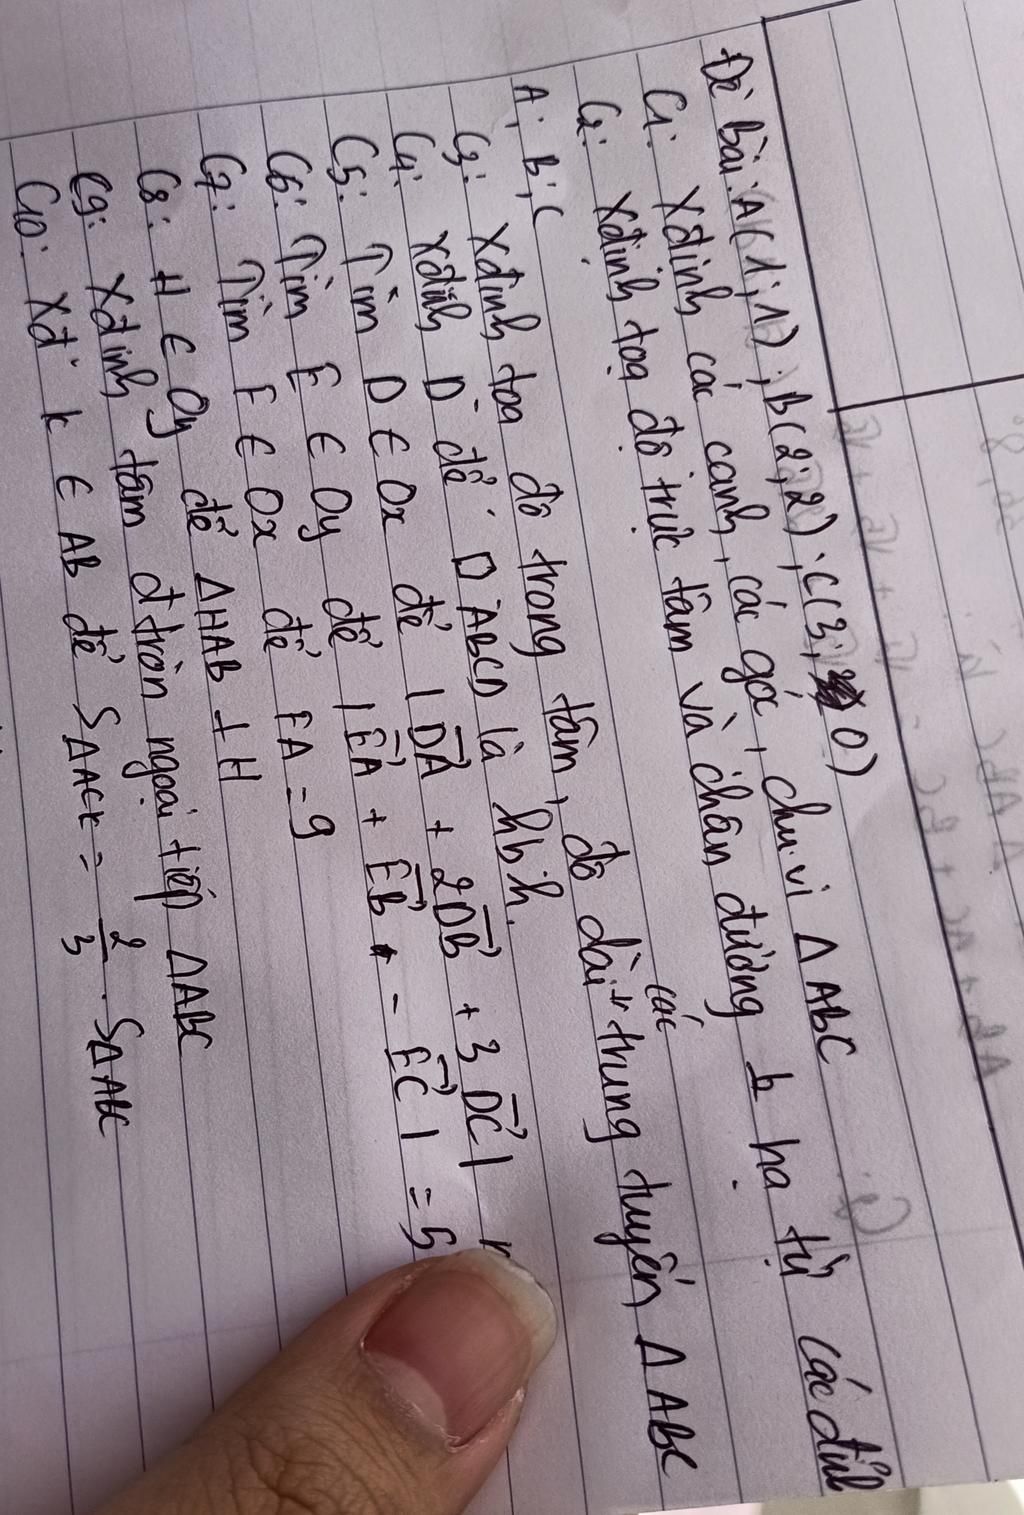 Đề bài: A(1;1); B(2;2); C(3; 0)
C1: Xđịnh các cạnh, các góc, chu vi Δ ABC
C2: Xđịnh toạ độ trực tâm và chân đường ⊥ hạ từ các đỉnh
A; B; C
C3: Xđịnh toạ độ trọng tâm, độ dài các trung tuyến Δ ABC
C4: Xđịnh D để □ ABCD là hbh.
C5: Tìm D ∈ Ox để |DA→ + 2DB→ + 3DC→|
C6: Tìm E ∈ Oy để |EA→ + EB→ - EC→| = 5
C7: Tìm F ∈ Ox để FA = 9
C8: H ∈ Oy để ΔHAB ⊥ H
C9: Xđịnh tâm đ tròn ngoại tiếp ΔABC
C10: Xđ K ∈ AB để SΔACK = 2/3 . SΔABC